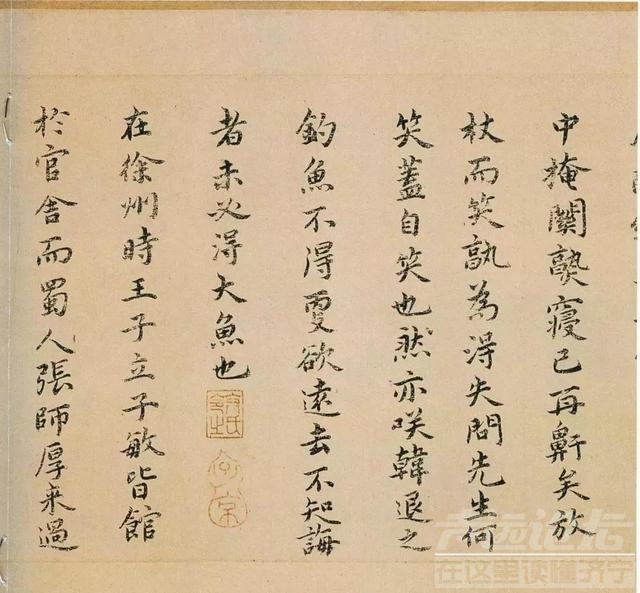 中掩關熟寢已再鼾矣放
杖而笑孰為得失問先生何
笑蓋自笑也然亦咲韓退之
釣魚不得更欲遠去不知誨
者未必得大魚也
在徐州時王子立子敏皆館
於官舍而蜀人張師厚来過
在这里读懂济宁